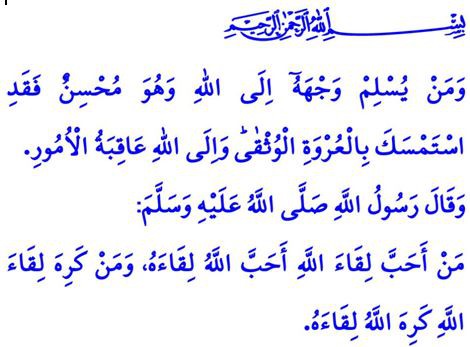 بِسْمِ اللهِ الرَّحْمٰنِ الرَّحِيمِ
وَمَنْ يُسْلِمْ وَجْهَهُٓ اِلَى اللهِ وَهُوَ مُحْسِنٌ فَقَدِ
اسْتَمْسَكَ بِالْعُرْوَةِ الْوُثْقٰىۜ وَاِلَى اللهِ عَاقِبَةُ الْاُمُورِ.
وَقَالَ رَسُولُ اللَّهِ صَلَّى اللَّهُ عَلَيْهِ وَسَلَّمَ:
مَنْ أَحَبَّ لِقَاءَ اللَّهِ أَحَبَّ اللَّهُ لِقَاءَهُ، وَمَنْ كَرِهَ لِقَاءَ
اللَّهِ كَرِهَ اللَّهُ لِقَاءَهُ.